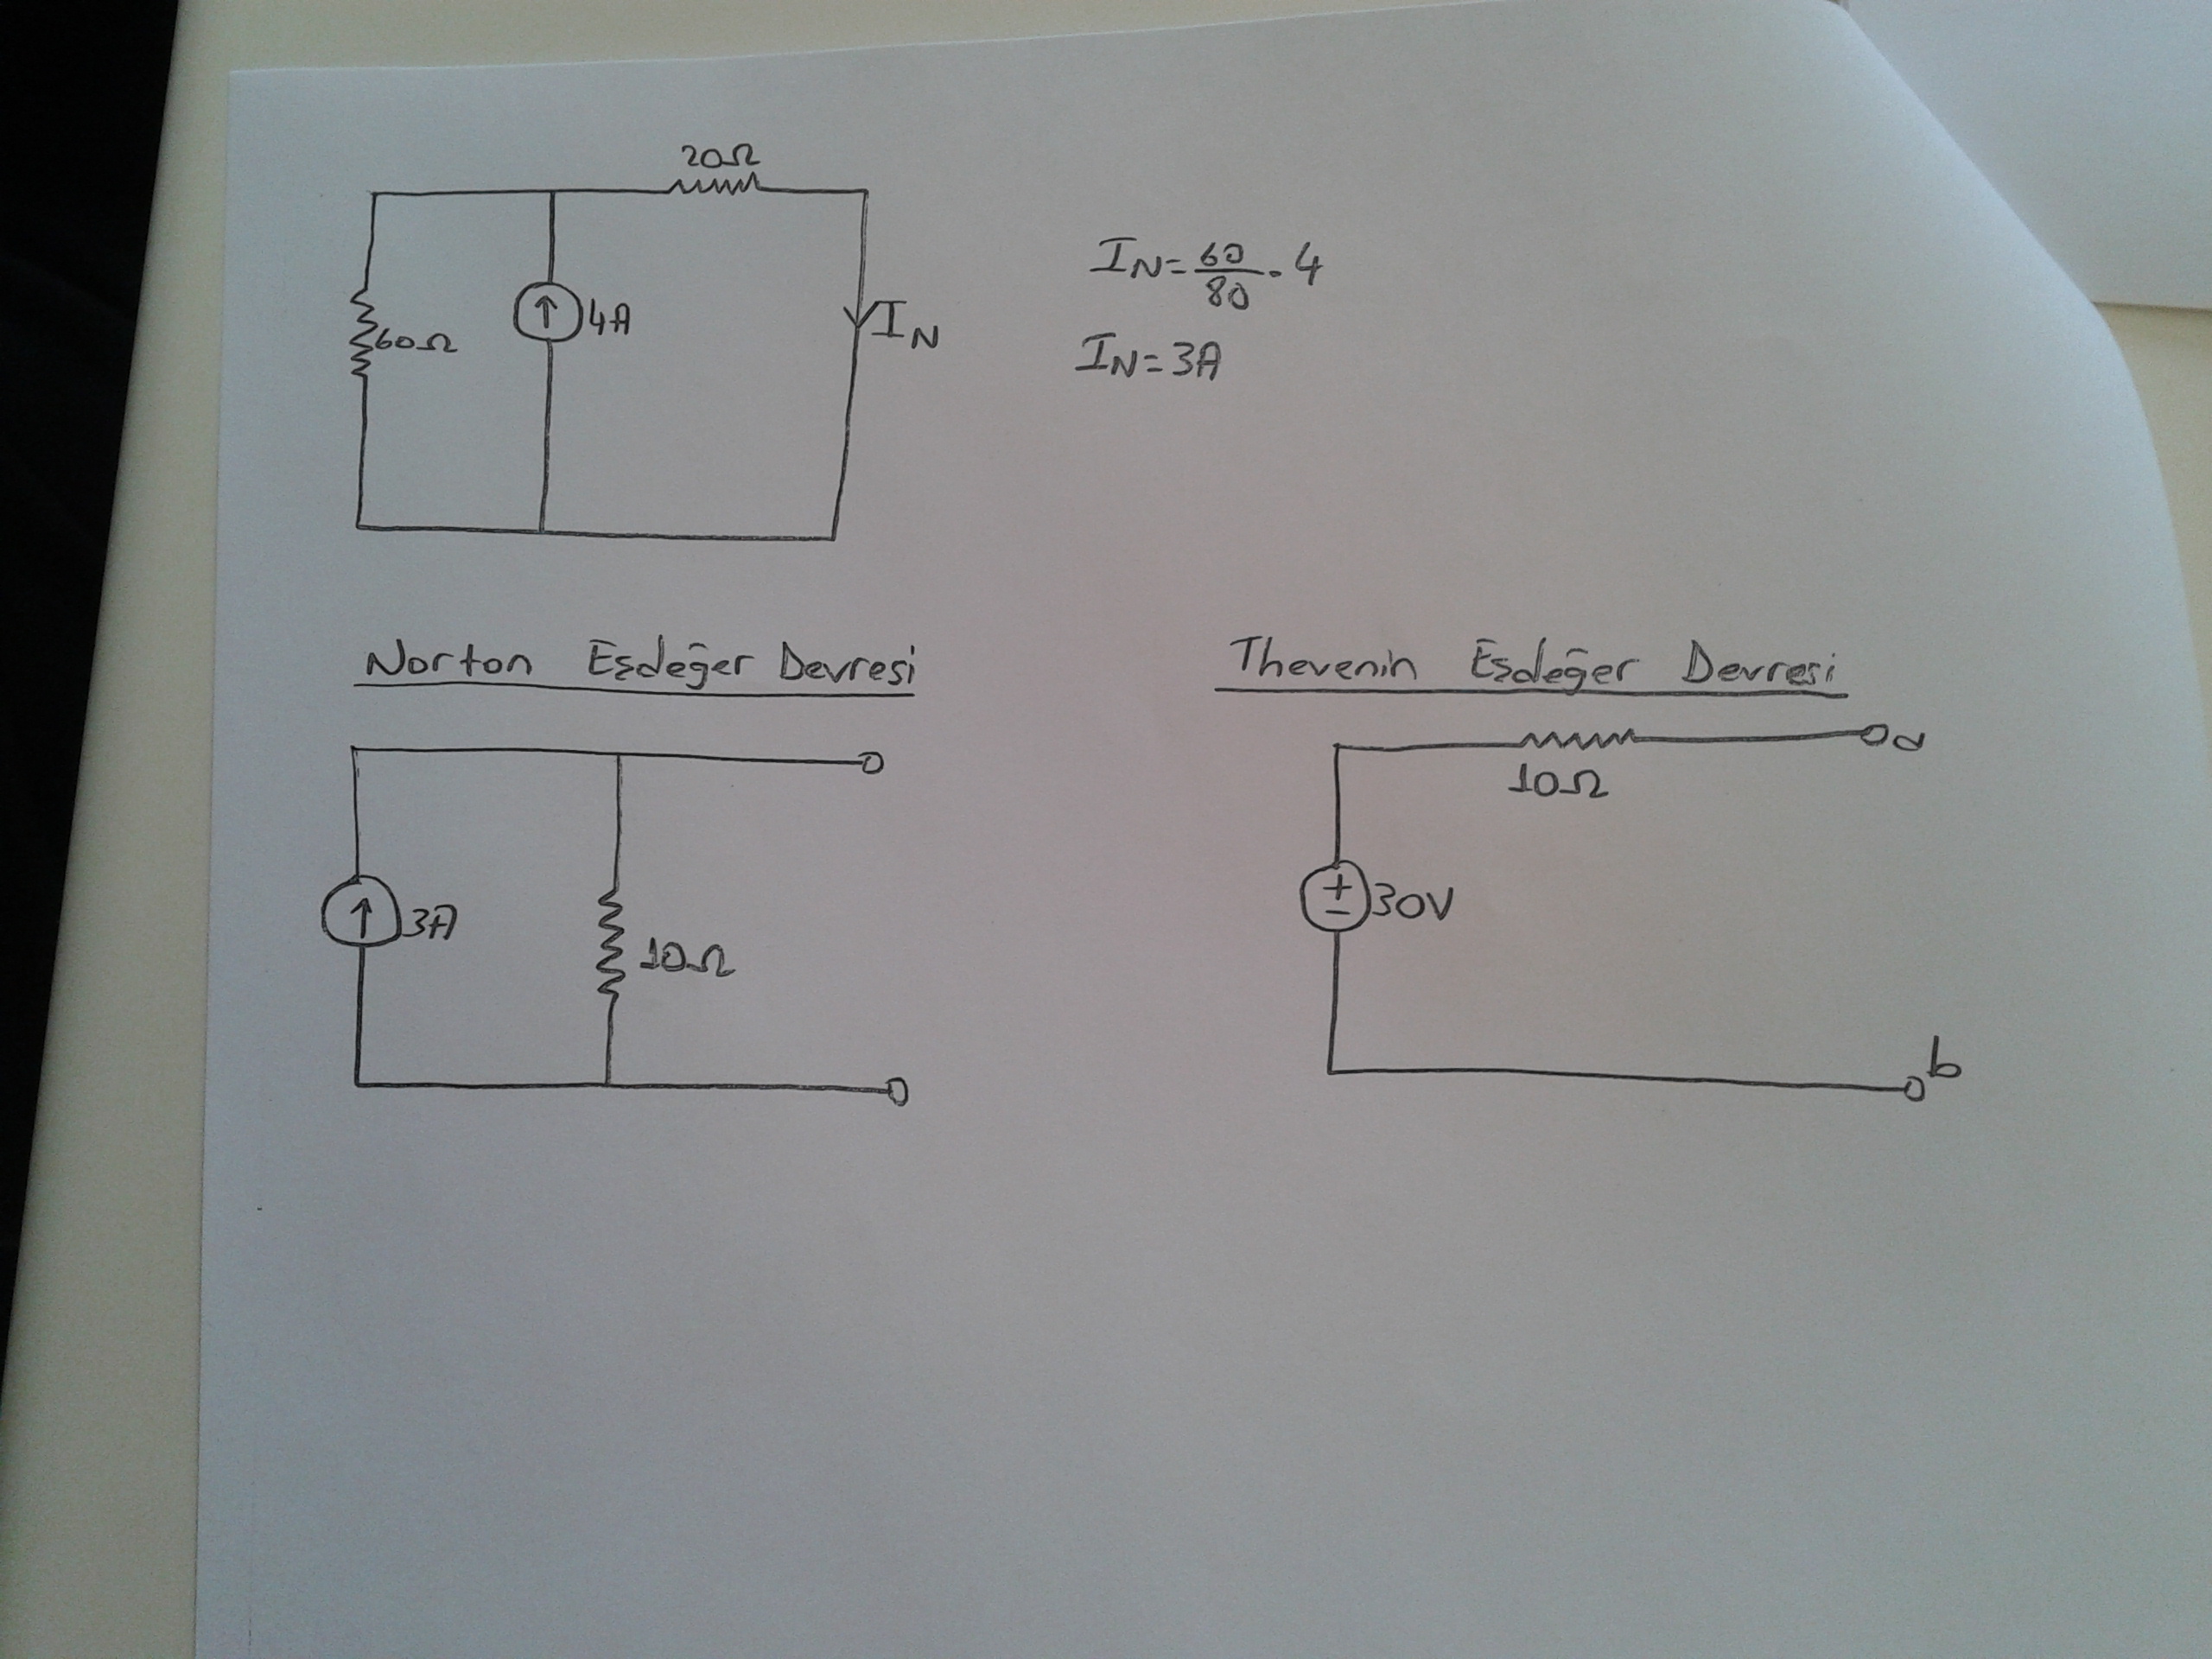 20Ω
60Ω
4A
IN
IN = 60/80 . 4
IN = 3A
Norton Eşdeğer Devresi
3A
10Ω
Thevenin Eşdeğer Devresi
a
10Ω
+
-
30V
b